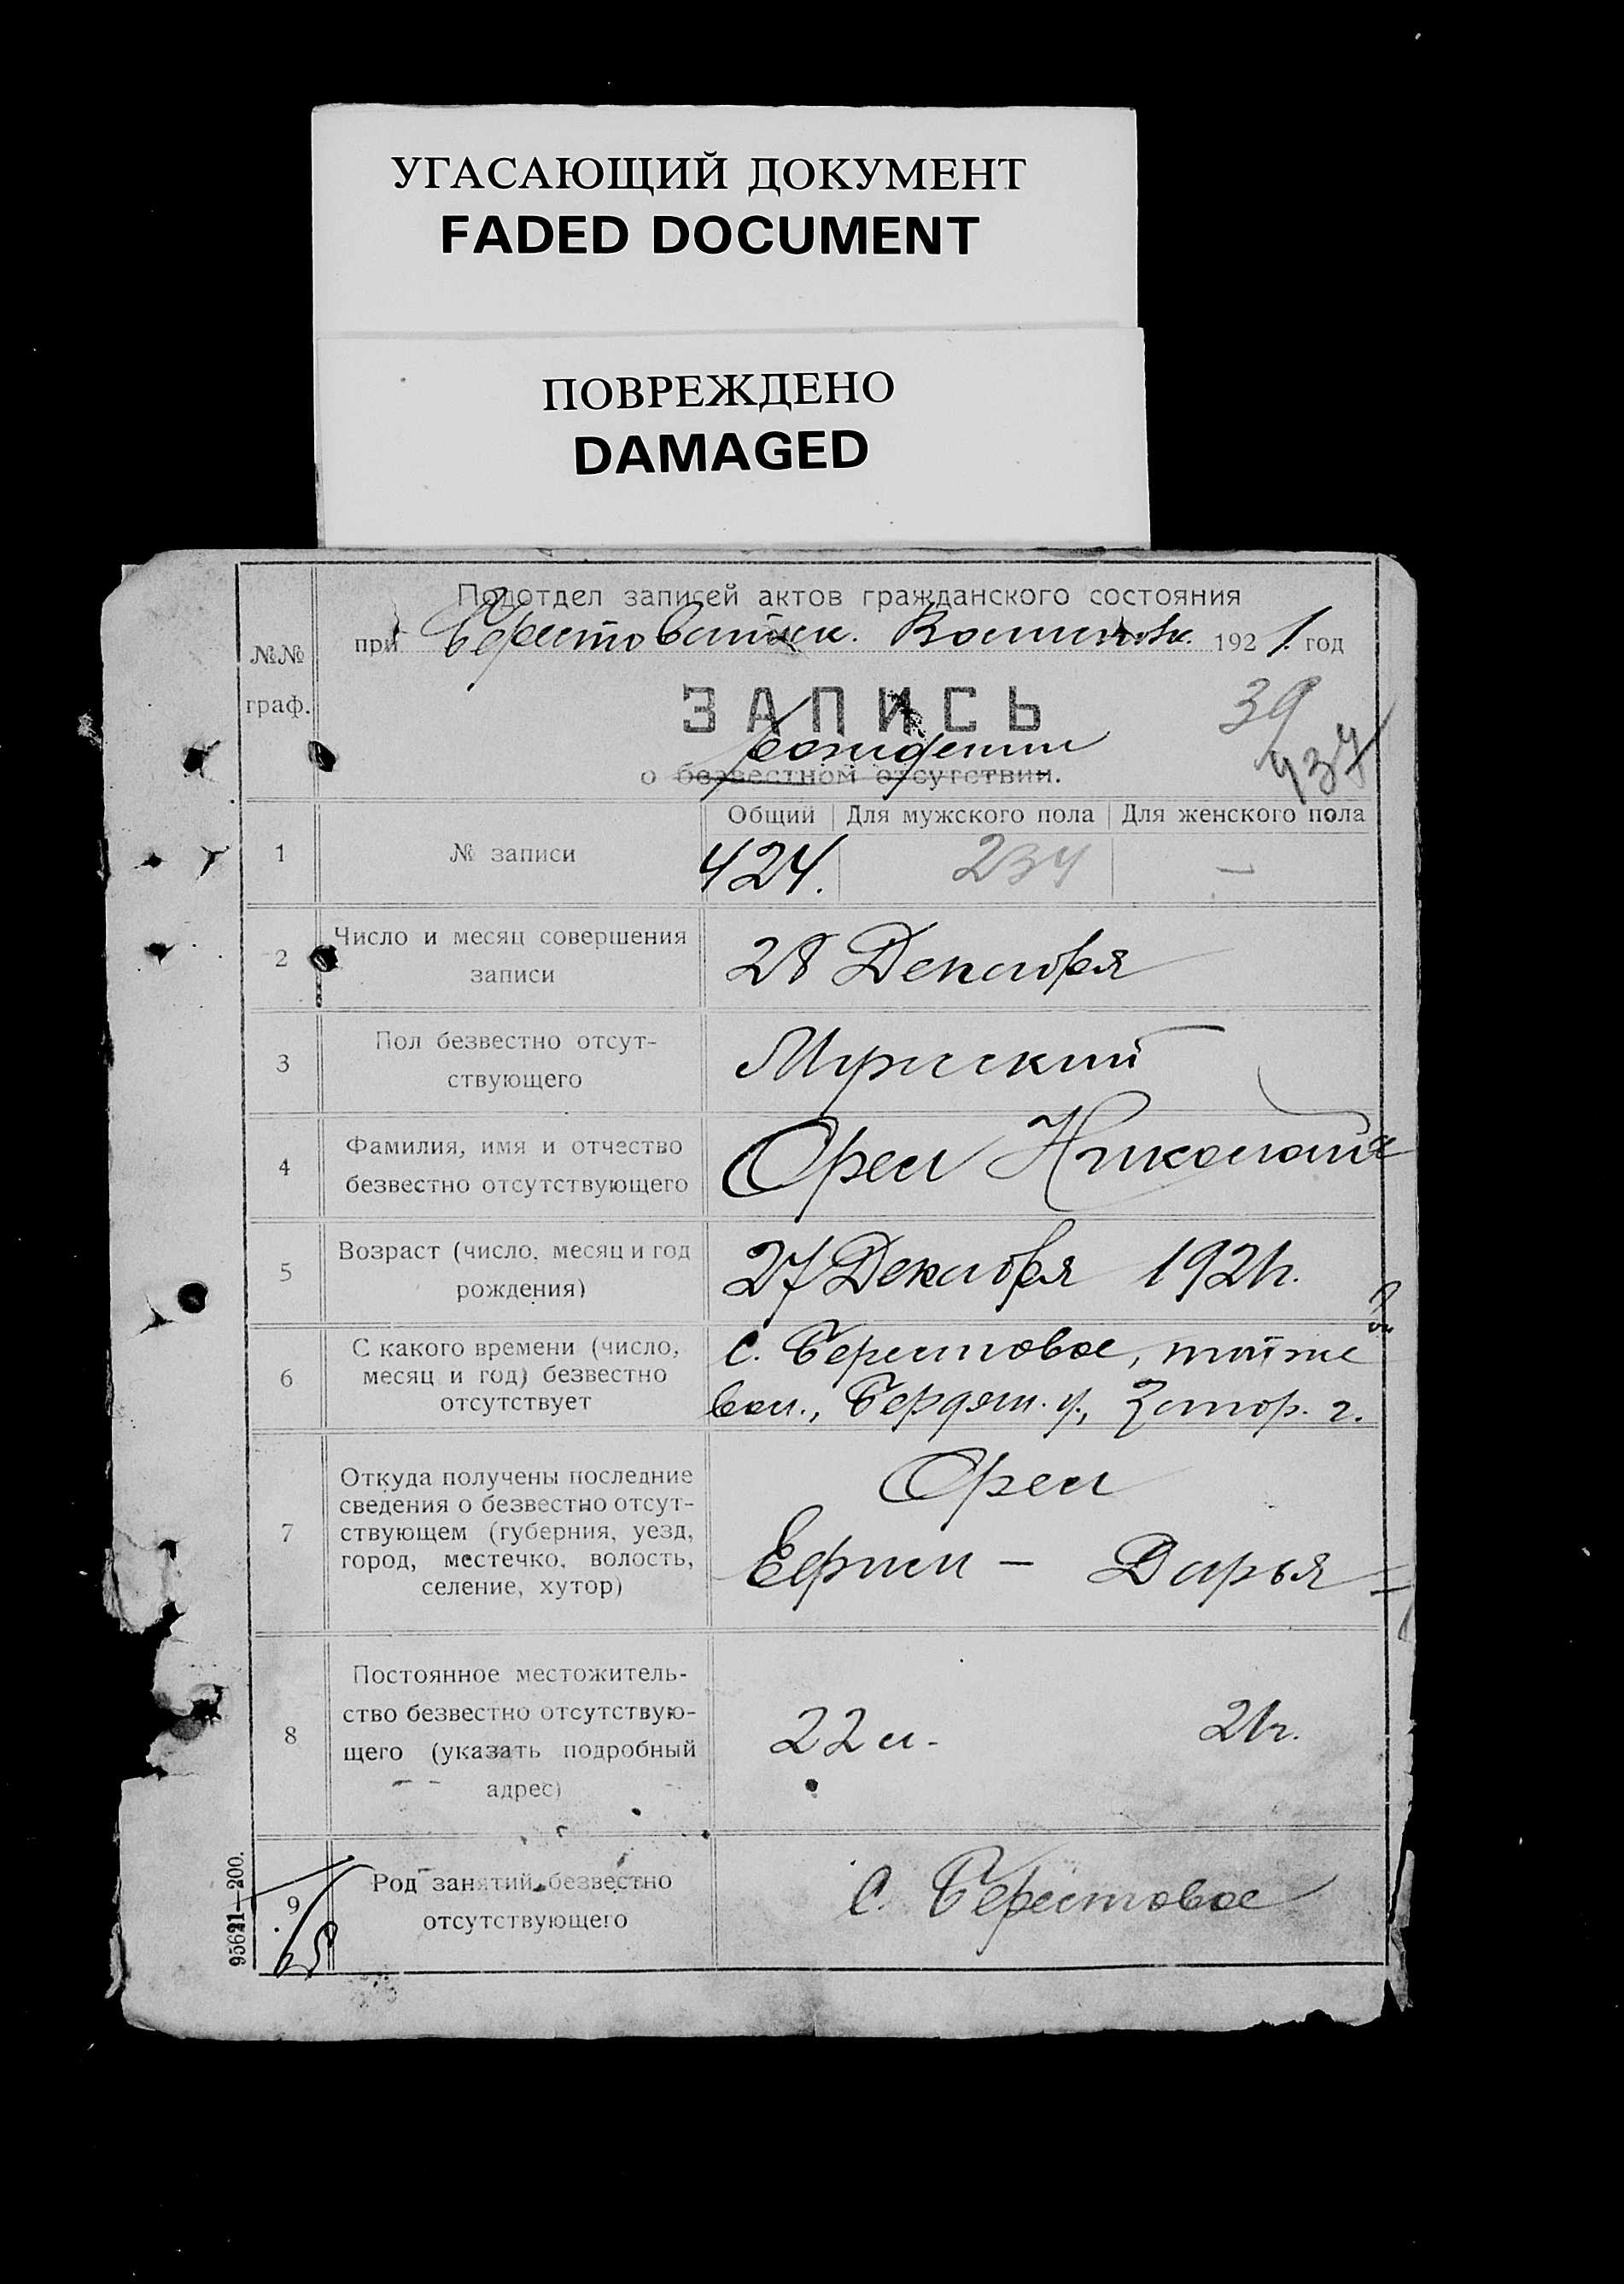 УГАСАЮЩИЙ ДОКУМЕНТ
FADED DOCUMENT
ПОВРЕЖДЕНО
DAMAGED
Подотдел записей актов гражданского состояния
№№ граф.
при Берестоватск. Волисполк. 1921 год
ЗАПИСЬ
39
рождении
437
о безвестном отсутствии.
Общий Для мужского пола Для женского пола
1 № записи 424. 234 —
2 Число и месяц совершения
записи
28 Декабря
3 Пол безвестно отсут-
ствующего
Мужский
4 Фамилия, имя и отчество
безвестно отсутствующего
Орел Николай
5 Возраст (число, месяц и год
рождения)
27 Декабря 1921 г.
6 С какого времени (число,
месяц и год) безвестно
отсутствует
С. Берестовое, той же
вол., Бердян. у., Запор. г.
7 Откуда получены последние
сведения о безвестно отсут-
ствующем (губерния, уезд,
город, местечко, волость,
селение, хутор)
Орел
Ефим — Дарья
8 Постоянное местожитель-
ство безвестно отсутствую-
щего (указать подробный
адрес)
22 л. 21 г.
9 Род занятий безвестно
отсутствующего
С. Берестовое
95621—200.